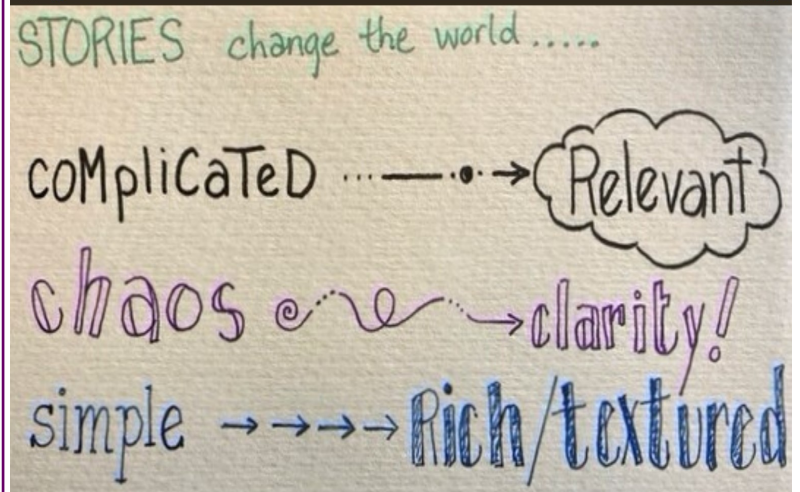 STORIES change the world.....
coMpliCaTeD Relevant
chaos clarity!
simple Rich/textured